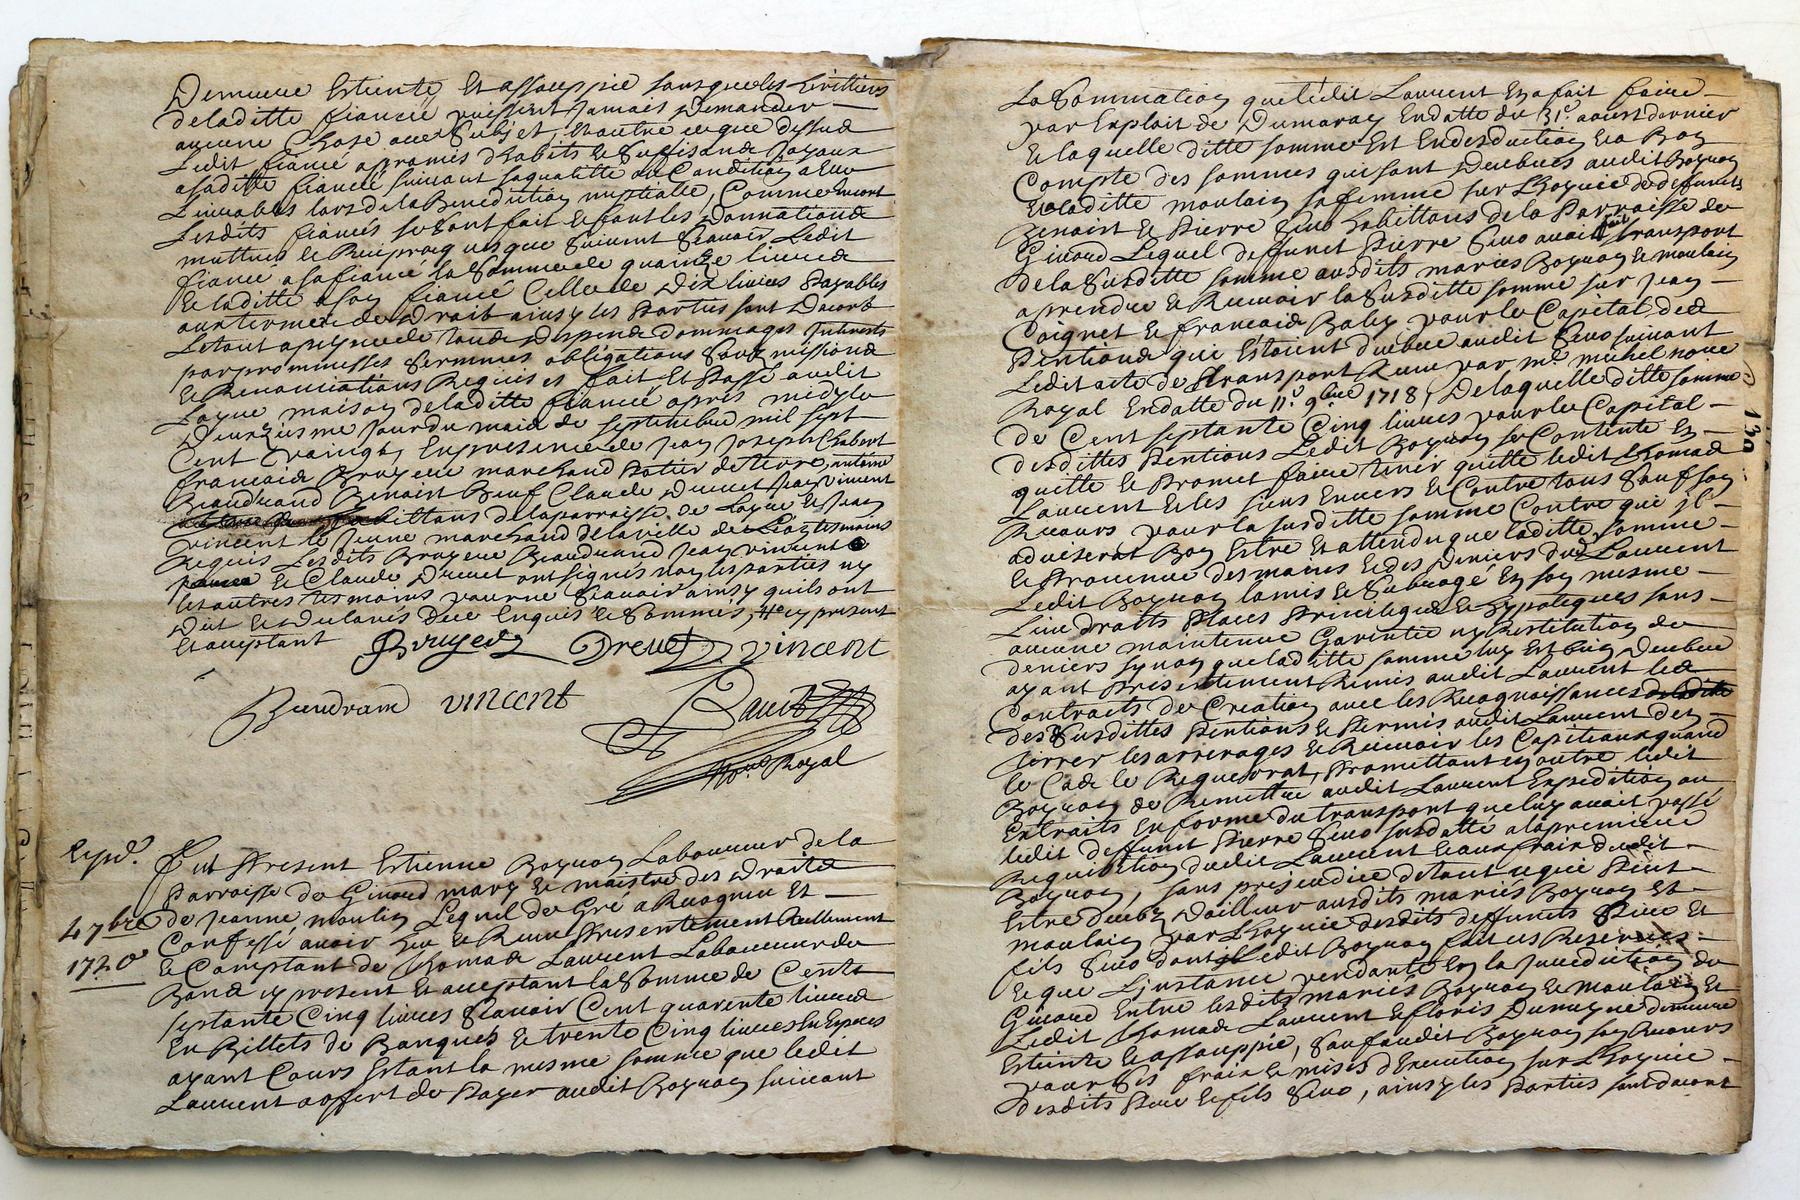 Demeure Esteinte Et assouppie sans que les heritiers
de laditte fiancée puissent Jamais Demander
aucune Chose au Subjet, Et outre ce que dessus
Ledit fiancé a promis d'habits Et Suffisans Joyaux
a saditte fiancée suivant sa qualitté Et Condition a Eux
Livrables lors de la Benediction nuptialle, Comme encore
Lesdits fiancés se sont fait Et font les Donnations
mutuel Et Reciproques que Suivent Scavoir Ledit
fiancé a sa fiancé la Somme de quarante livres
Et laditte a son fiancé Celle de Dix livres Payables
aux termes de Droit ainsy les Parties sont Dacord
Le tout a peyne de tous Depens Dommages Interests
par prommesses sermens obligations Soubmissions
Et Renonciations Requises fait Et Passé audit
maison de laditte fiancée apres midy le
Jour du mois de septembre mil sept
Cent vaingt, En presence de Jean Joseph Chabert
francois Bruyere marchand Potier de terre, antoine
Beaudrand Benoist Beuf Claude Drevet Jean vincent
habittans de la parroisse de Et Jean
vincent le Jeune marchand de la ville de Lion tesmoins
Requis Lesdits Bruyere Beaudrand Jean vincent
Et Claude Drevet ont signés non les parties ny
les autres tesmoins pour ne Scavoir ainsy quils ont
Dit Et declarés de ce Enquis Et Sommés, Et cy present
Et acceptant Bruyere Drevet vincent
Beaudrand vincent
Royal
Expd.
Fut Present Estienne Boynon Laboureur de la
Parroisse de Givord mary Et maistre des Droits
4 7bre de Jeanne moulin Lequel de Gré a Recogneu Et
Confessé avoir Eu Et Receu Presentement Reellement
1720 Et Comptant de Thomas Laurent Laboureur de
Bans cy present Et acceptant la Somme de Cents
septante Cinq livres Scavoir Cent quarente livres
En Billets de Banques Et trente Cinq livres En Especes
ayant Cours Estant la mesme somme que ledit
Laurent a offert de Payer audit Boynon suivant
La Sommation que ledit Laurent En a fait faire
par Exploit de Dumaray En datte du 31e. aoust dernier
Et laquelle ditte somme Est En desduction Et a Bon
Compte des sommes qui sont Deubues audit Boynon
Et a laditte moulain sa femme sur L'hoyrie de deffunts
Benoist Et Pierre habittans de la Parroisse de
Givord Lequel deffunct Pierre avait fait transport
De la Susditte somme ausdits mariés Boynon Et moulain
a prendre Et Recevoir la Susditte somme sur Jean
Coignet Et francois Baley pour le Capital des
Pentions qui Estoient deubue audit suivant
Ledit acte de Transport Receu par me. michel notre
Royal En datte du 11e. 9bre 1718, De laquelle ditte somme
de Cent septante Cinq livres pour le Capital
desdittes Pentions Ledit Boynon se Contente En
quitte Et Promet faire tenir quitte ledit Thomas
Laurent Et les siens Envers Et Contre tous Sauf son
Recours pour la susditte somme Contre qui il
adviserat Bon Estre Et attendu que laditte somme
Et Provenue des mains Et des Deniers dud Laurent
Ledit Boynon la mis Et Subrogé En son mesme
Lieu droits Places Privileges Et hypoteques sans
aucune maintenue Garentie ny Restitution de
deniers synon que laditte somme luy Est bien Deubue
ayant Presentement Remis audit Laurent les
Contracts de Creation avec les Recognoissances
des Susdittes Pentions Et Permis audit Laurent d'ex
les arrerages Et Recevoir les Capitaux quand
le Cas le Requerrat, Promettant en outre ledit
Boynon de Remettre audit Laurent Expedition ou
Extraits En forme du transport que luy avait passé
ledit deffunt Pierre susdatté a la premiere
Requisition dudit Laurent Et aux frais dudit
Boynon, sans prejudice de tout ce que Peut
Estre deub Dailleur ausdits mariés Boynon Et
moulain par L'hoyrie desdits deffunts Pere Et
fils dont ledit Boynon fait ses Reserves
Et que L'instance pendante En la Jurediction de
Givord Entre lesdits mariés Boynon Et moulain Et
Ledit Thomas Laurent Et floris Demeure
Esteinte Et assouppie, Sauf audit Boynon son Recours
pour ses frais Et mises d'Execution sur L'hoyrie
desdits Pere Et fils , ainsy les Parties sont dacord